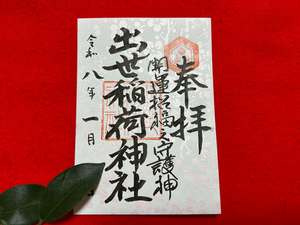 奉拝
開運招福之守護神
出世稲荷神社
令和八年一月